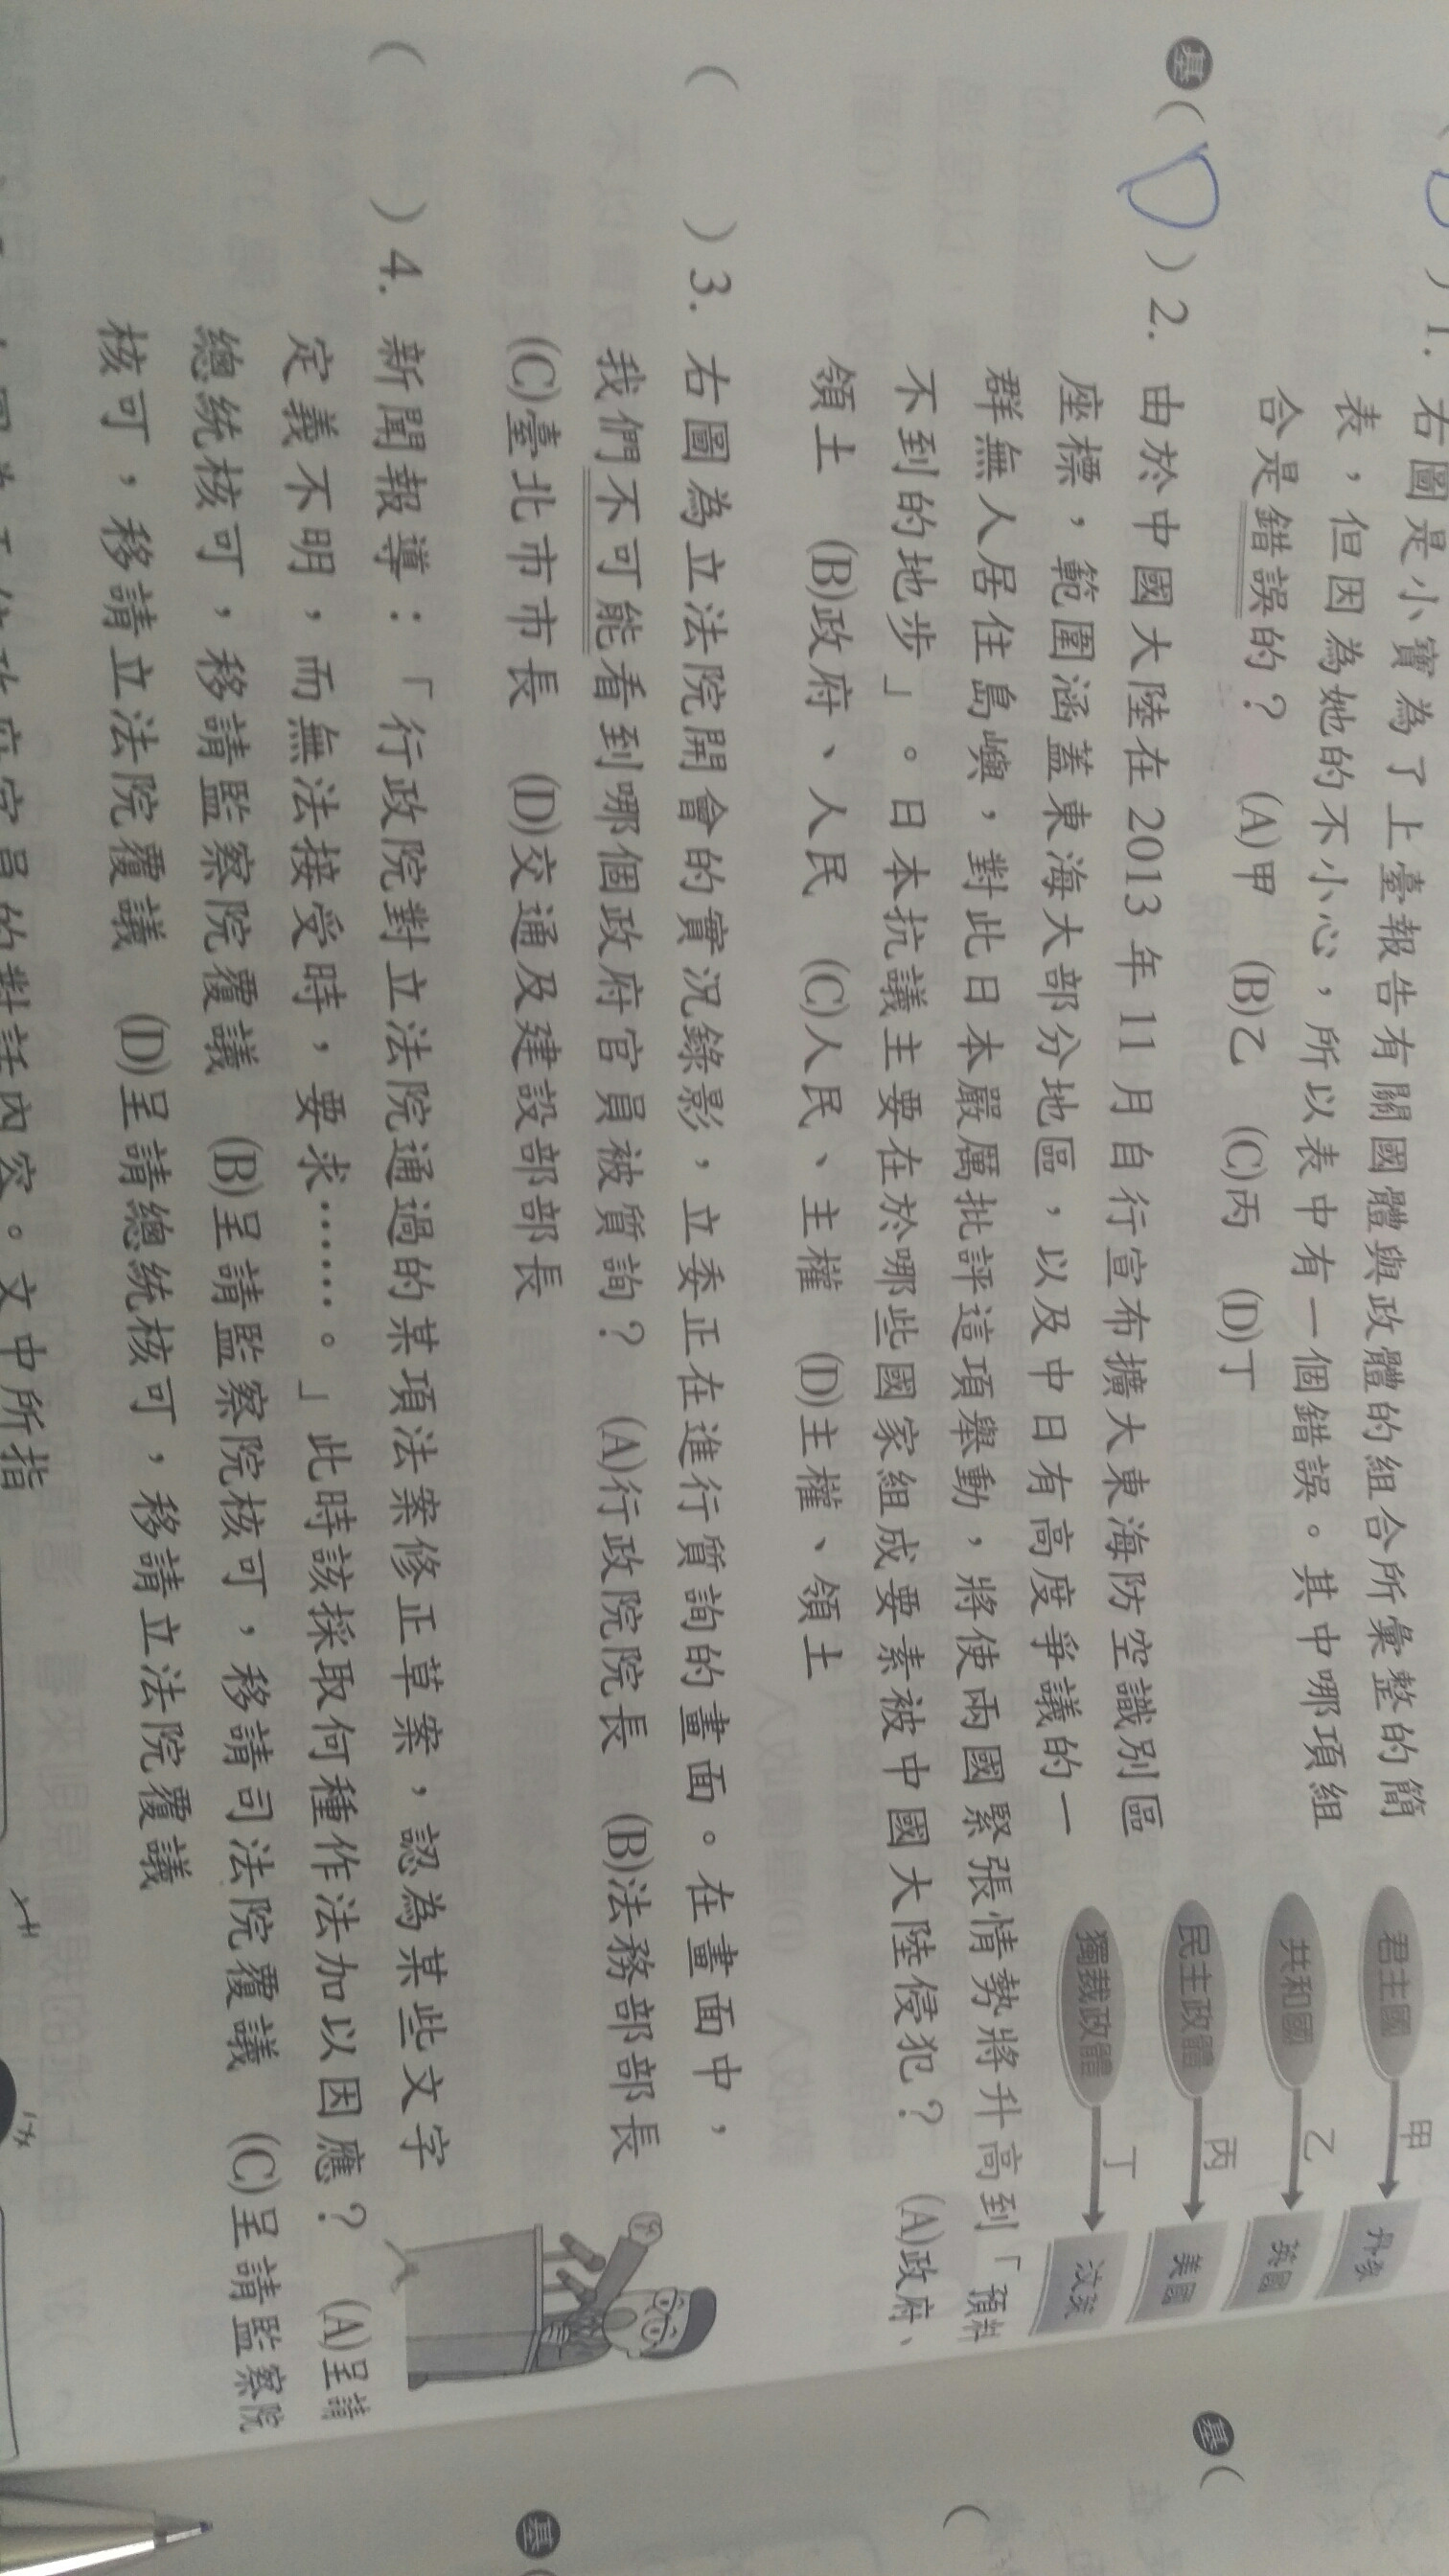 )1. 右圖是小寶為了上臺報告有關國體與政體的組合所彙整的簡
表，但因為她的不小心，所以表中有一個錯誤。其中哪項組
合是錯誤的？ (A)甲 (B)乙 (C)丙 (D)丁
君主國 甲 丹麥
共和國 乙 英國
民主政體 丙 美國
獨裁政體 丁 汶萊
基( D )2. 由於中國大陸在2013年11月自行宣布擴大東海防空識別區
座標，範圍涵蓋東海大部分地區，以及中日有高度爭議的一
群無人居住島嶼，對此日本嚴厲批評這項舉動，將使兩國緊張情勢將升高到「預料
不到的地步」。日本抗議主要在於哪些國家組成要素被中國大陸侵犯？ (A)政府、
領土 (B)政府、人民 (C)人民、主權 (D)主權、領土
( )3. 右圖為立法院開會的實況錄影，立委正在進行質詢的畫面。在畫面中，
我們不可能看到哪個政府官員被質詢？ (A)行政院院長 (B)法務部部長
(C)臺北市市長 (D)交通及建設部部長
( )4. 新聞報導：「行政院對立法院通過的某項法案修正草案，認為某些文字
定義不明，而無法接受時，要求……。」此時該採取何種作法加以因應？ (A)呈請
總統核可，移請監察院覆議 (B)呈請監察院核可，移請司法院覆議 (C)呈請監察院
核可，移請立法院覆議 (D)呈請總統核可，移請立法院覆議
官員的對話內容。文中所指
基(
(
基(